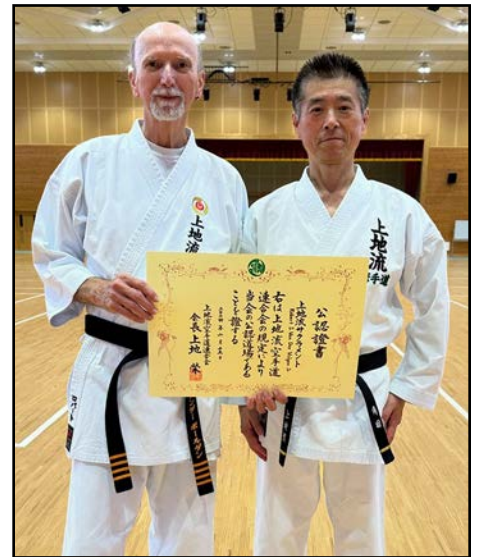 上地流
上地流
手道
公認證書
上地流サクラメント
右は上地流空手道
連合会の規定により
当会の公認道場である
ことを證する
上地流空手道連合会
会長 上地
ロバート